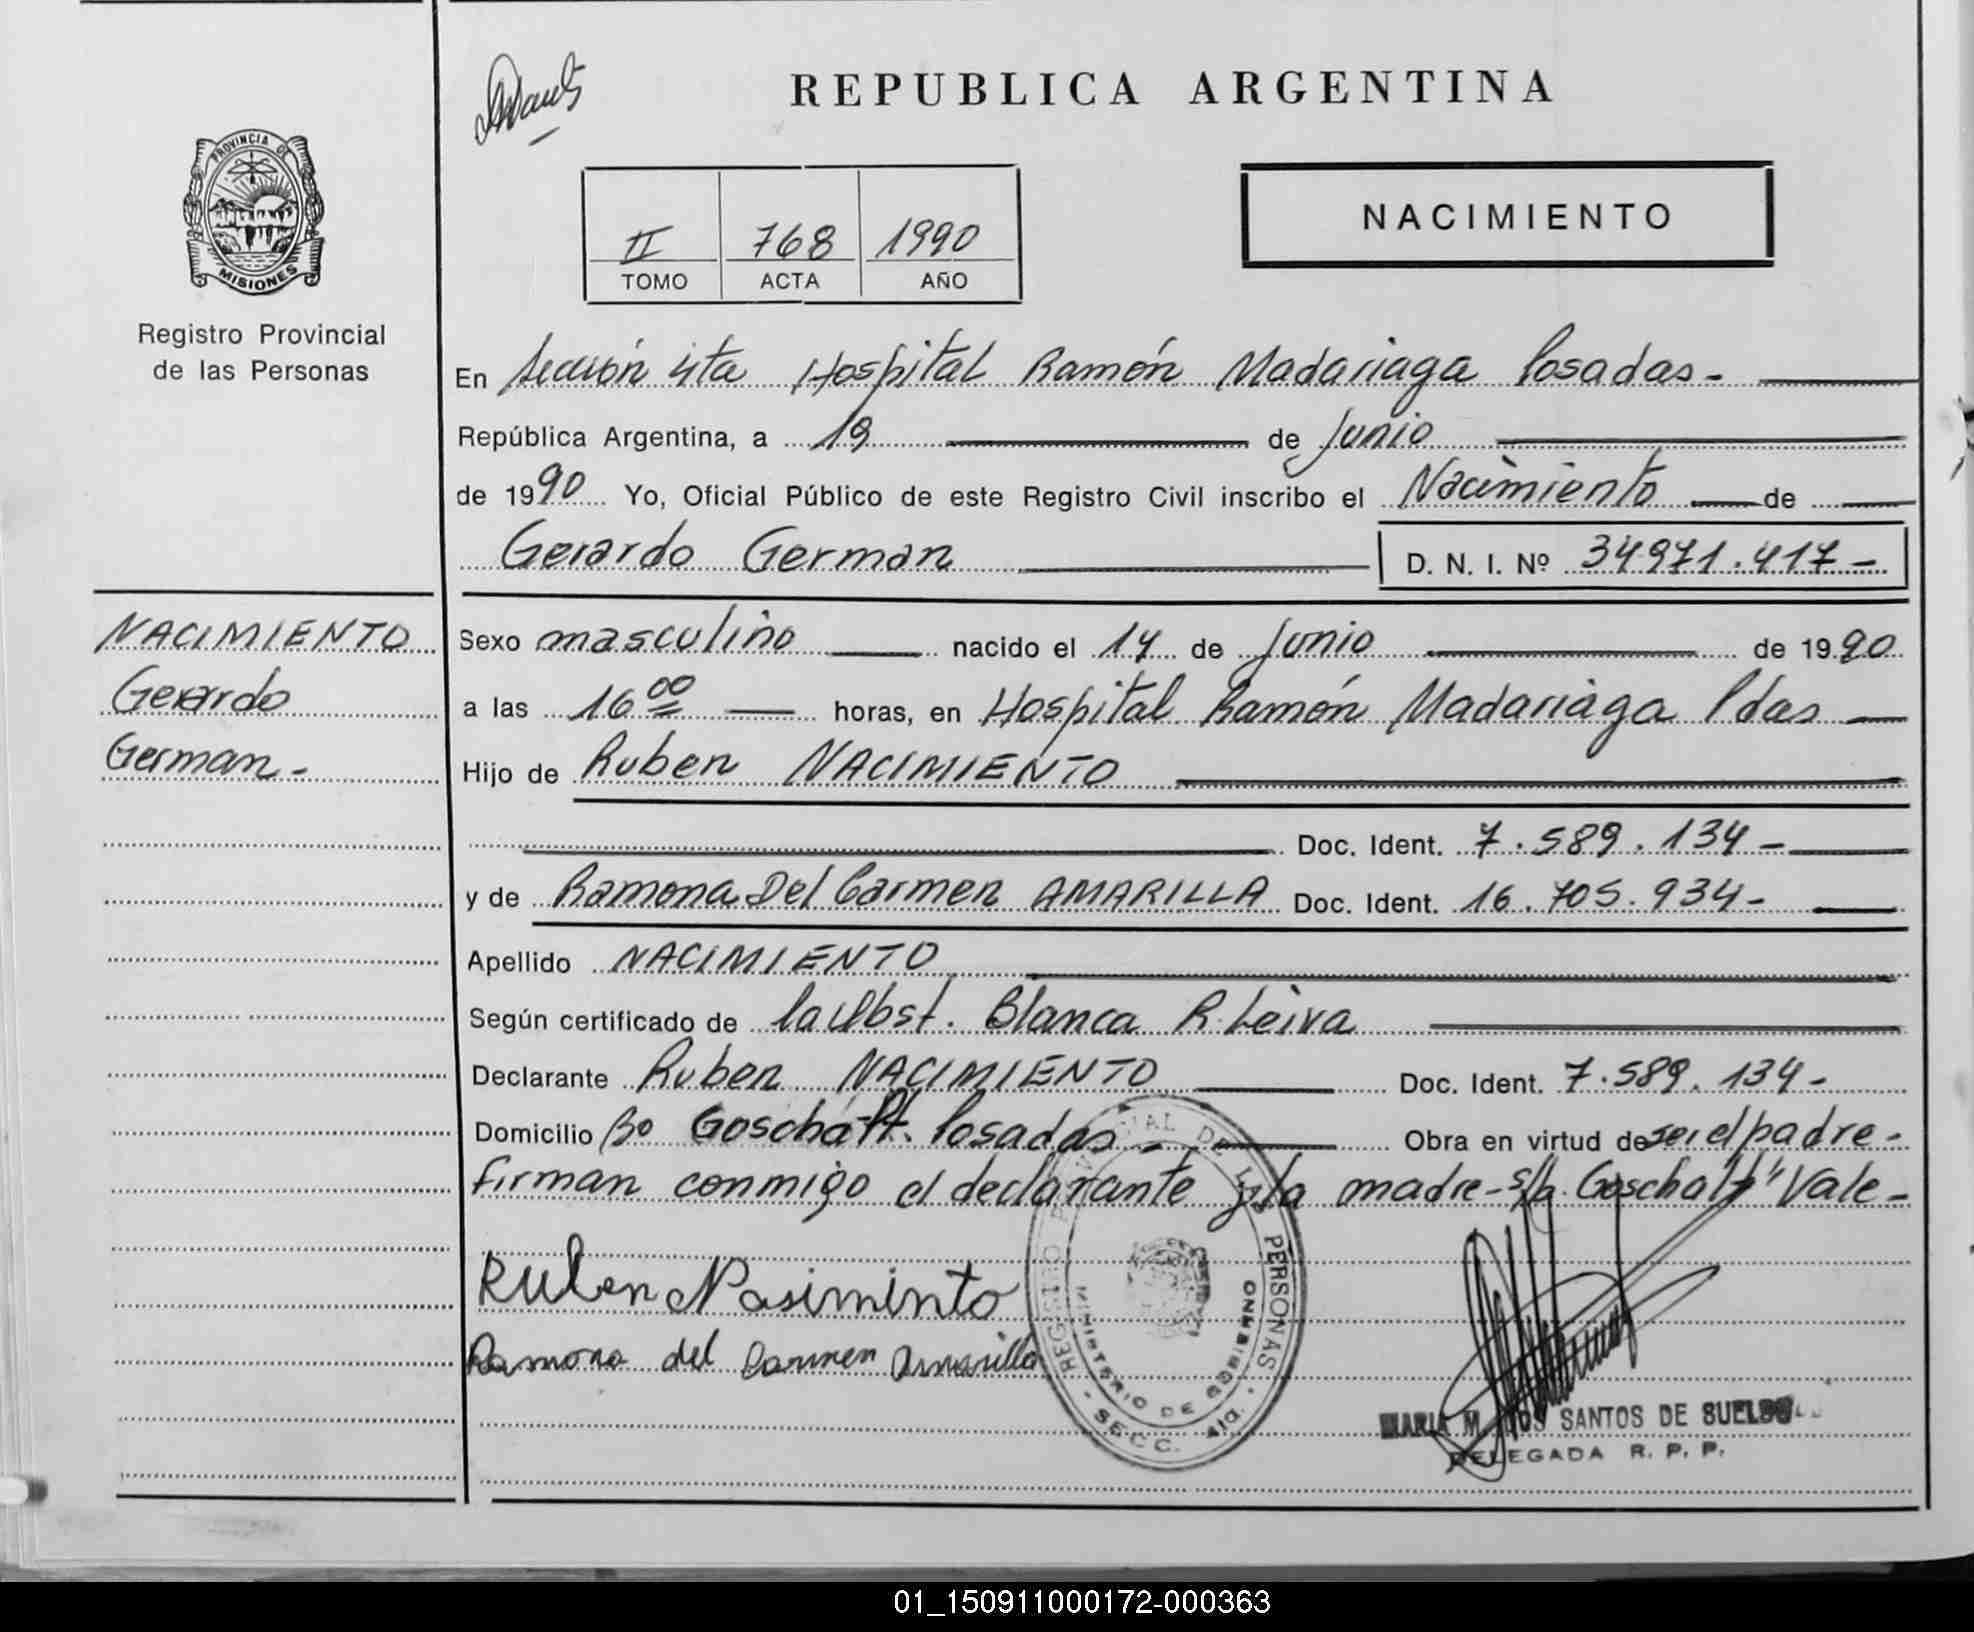 REPUBLICA ARGENTINA
PROVINCIA DE
MISIONES
Registro Provincial
de las Personas
II 768 1990
TOMO ACTA AÑO
NACIMIENTO
En Sección 4ta Hospital Ramón Madariaga Posadas-
República Argentina, a 19 de Junio
de 1990 Yo, Oficial Público de este Registro Civil inscribo el Nacimiento de
Gerardo German D. N. I. Nº 34971.417-
NACIMIENTO
Gerardo
German-
Sexo masculino nacido el 14 de Junio de 1990
a las 16 00 horas, en Hospital Ramón Madariaga Pdas
Hijo de Ruben NACIMIENTO
Doc. Ident. 7.589.134-
y de Ramona Del Carmen AMARILLA Doc. Ident. 16.705.934-
Apellido NACIMIENTO
Según certificado de la Obst. Blanca R. Leiva
Declarante Ruben NACIMIENTO Doc. Ident. 7.589.134-
Domicilio Bo Posadas- Obra en virtud de ser el padre-
firman conmigo el declarante y la madre- Vale-
Ruben Nasiminto
Ramona del Carmen Amarilla
REGISTRO PROVINCIAL DE LAS PERSONAS
MINISTERIO DE GOBIERNO
SECC. 4ta.
MARIA M. DOS SANTOS DE SUELDO
DELEGADA R. P. P.
01_150911000172-000363